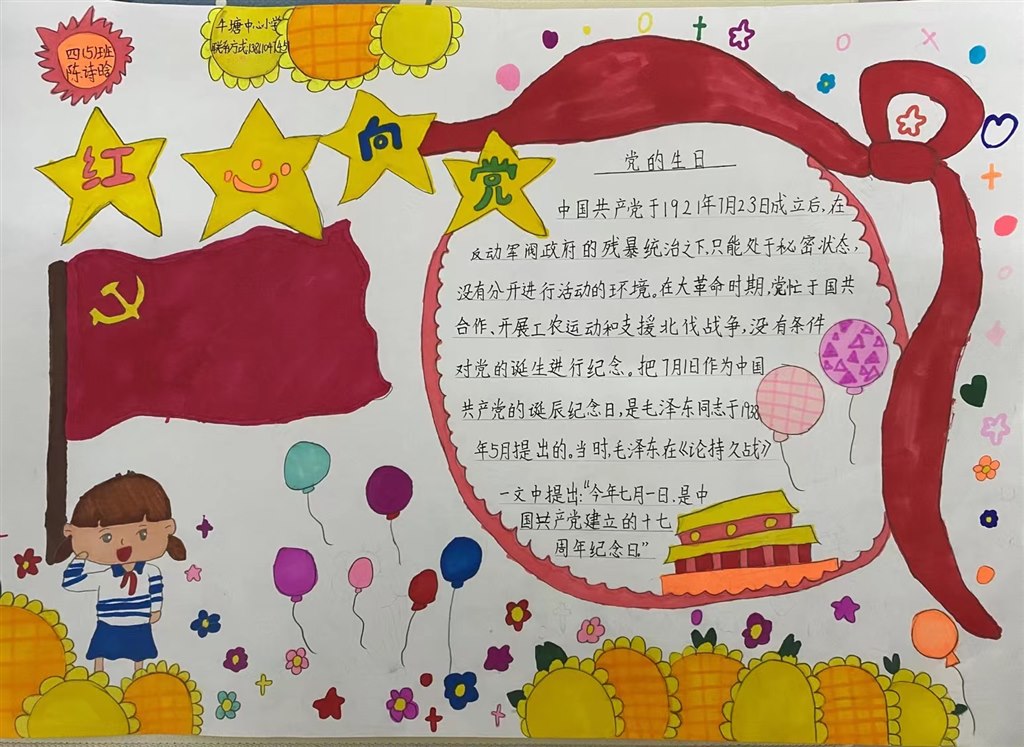 四(5)班
陈诗晗
牛塘中心小学
联系方式
红
向
党
党的生日
中国共产党于1921年7月23日成立后,在
反动军阀政府的残暴统治之下,只能处于秘密状态,
没有公开进行活动的环境。在大革命时期,党忙于国共
合作、开展工农运动和支援北伐战争,没有条件
对党的诞生进行纪念。把7月1日作为中国
共产党的诞辰纪念日,是毛泽东同志于1938
年5月提出的。当时,毛泽东在《论持久战》
一文中提出:“今年七月一日,是中
国共产党建立的十七
周年纪念日。”